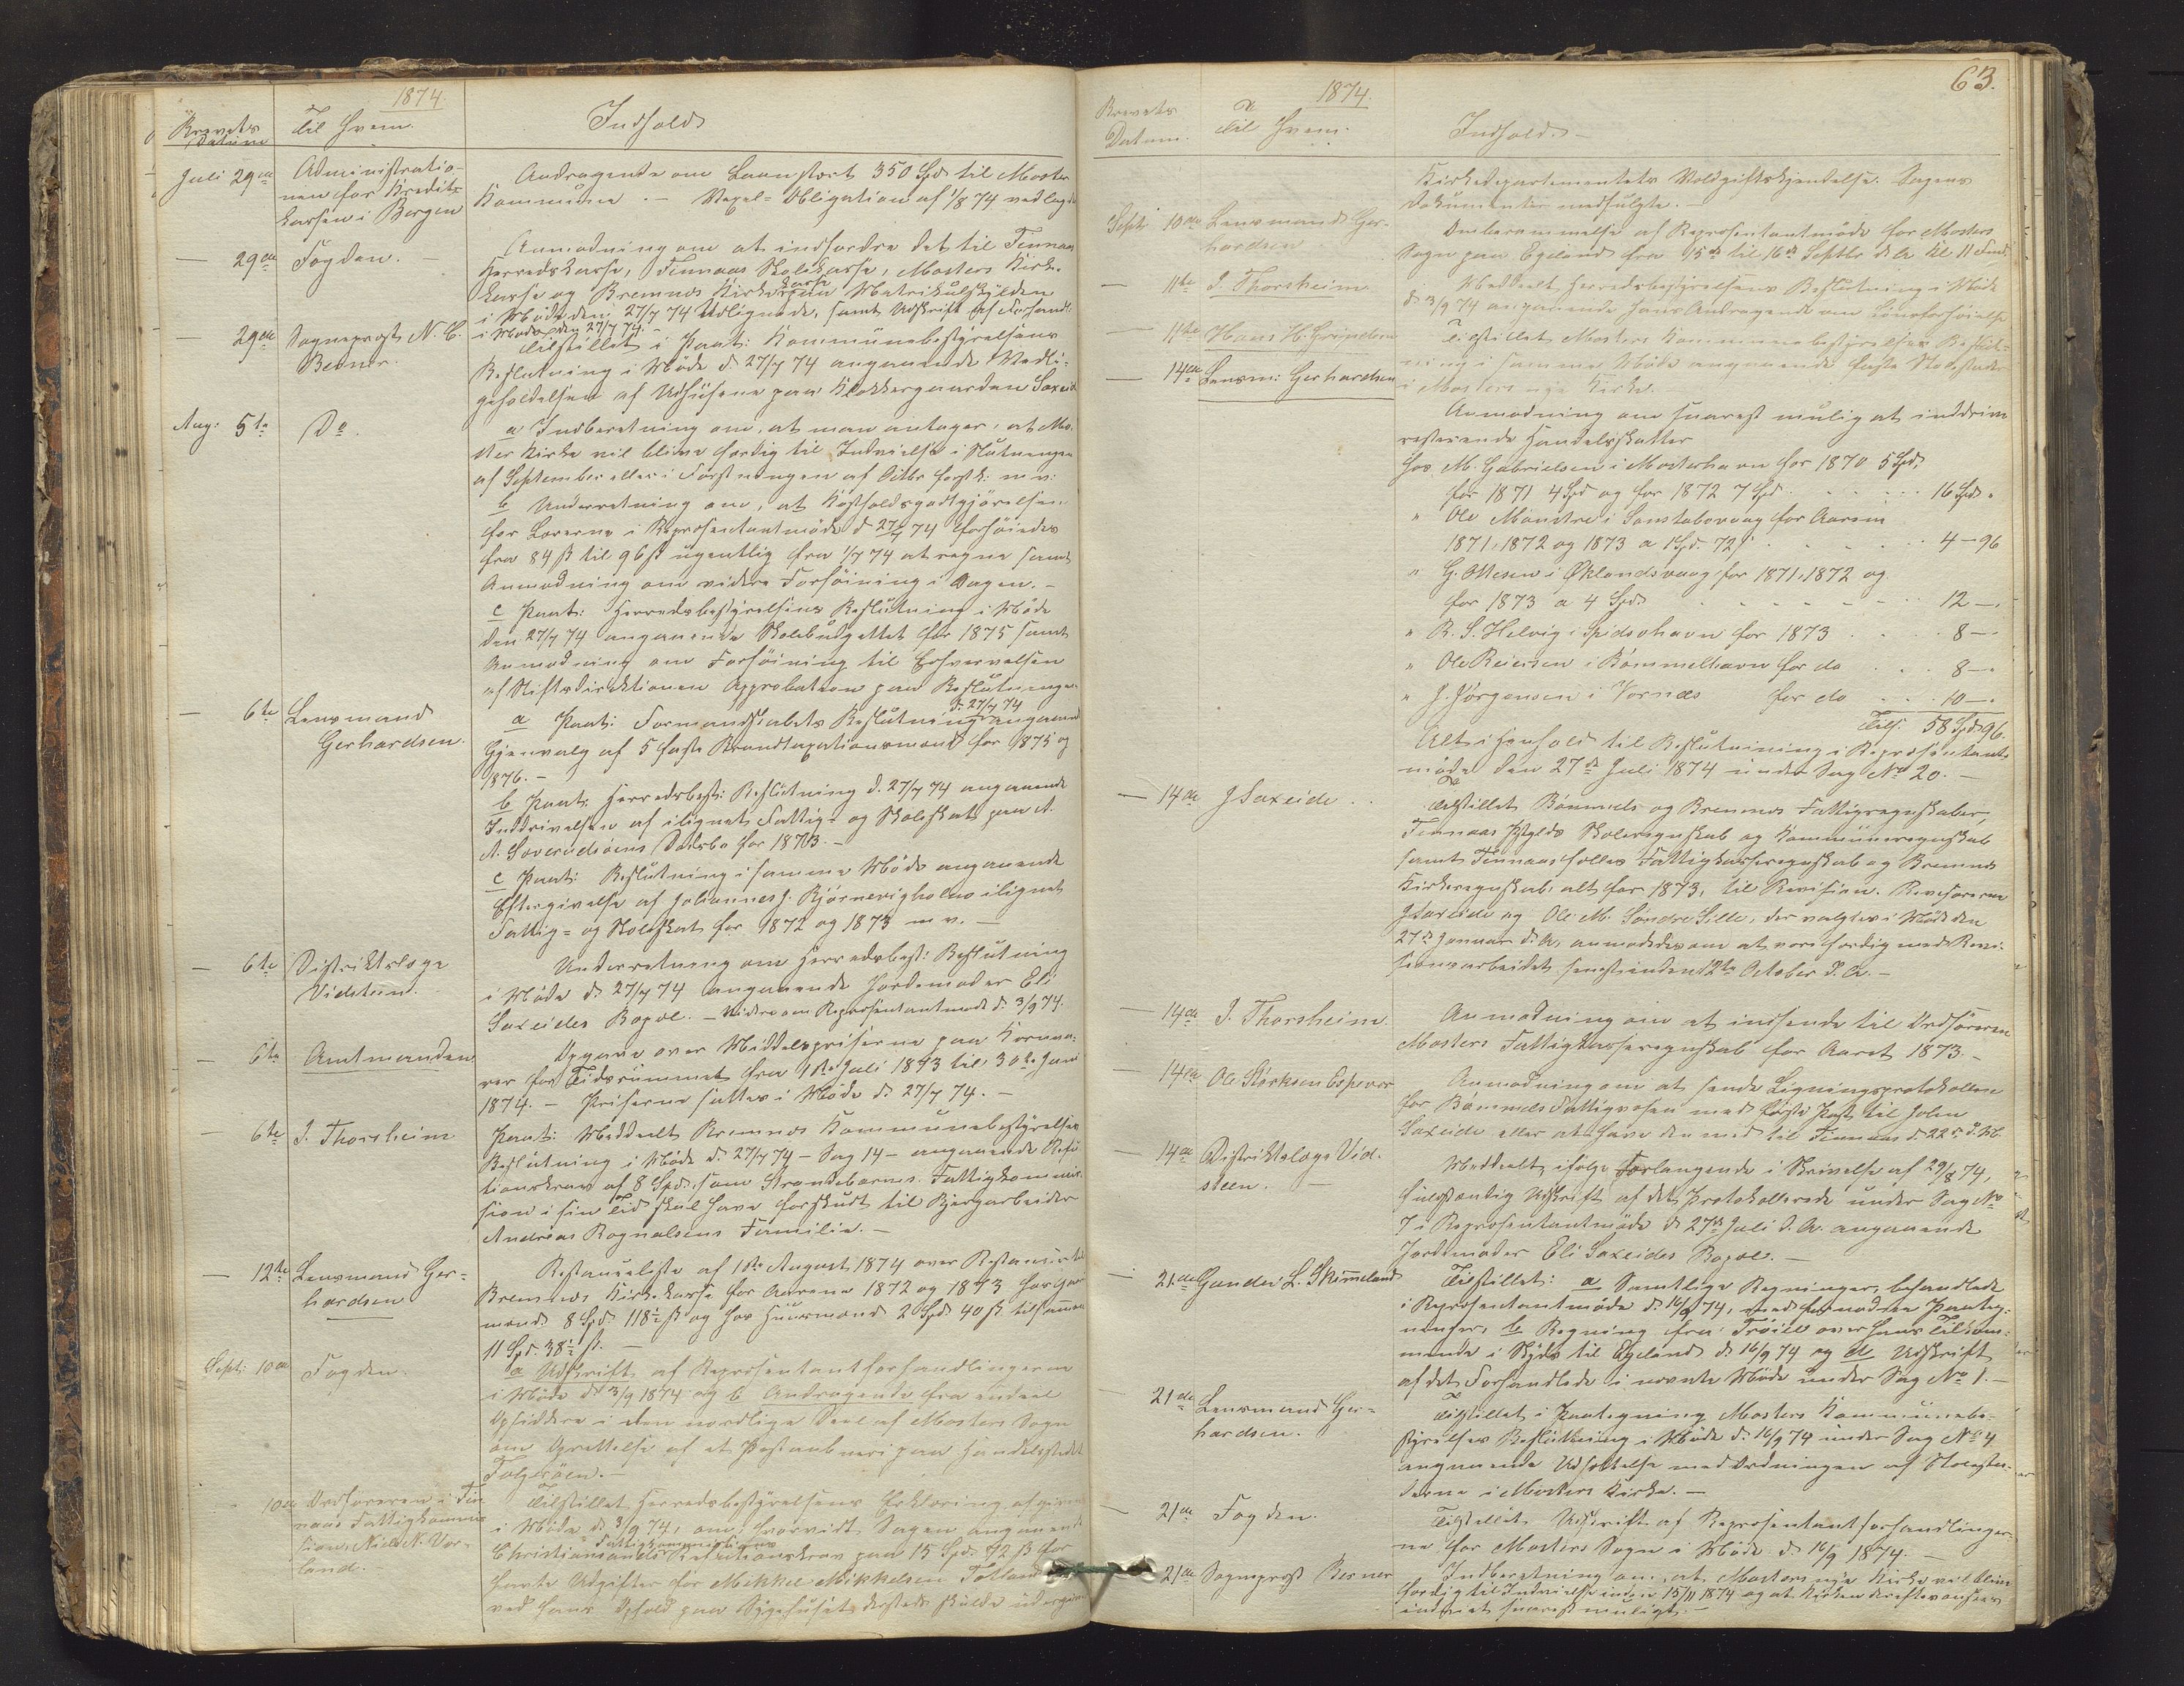 1874
Brevets Datum
Til Hvem.
Indhold
Juli 29de
Administratio-
nen for Kredit-
kassen i Bergen
Andragende om Laan stort 350 Spd. til Moster
Kommune. — Vexel-Obligation af 1/8 74 vedlagt
— 29de Fogden. —
Anmodning om at indfordre det til Finnaas
Herredskasse, Finnaas Skolekasse, Mosters Kirke-
kasse og Bremnes Kirkekasse paa Matrikulskylden
i Møde den 27/7 74 Udlignede, samt Udskrift af Forhandl:
i Møde den 27/7 74. —
— 29de Sogneprest N. C.
Berner.
Tilstillet i Paat: Kommunebestyrelsens
Beslutning i Møde d 27/7 74 angaaende Vedli-
geholdelsen af Udhusene paa Klokkergaarden Saxeid
Aug: 5te Do.
a Indberetning om, at man antager, at Mo-
ster Kirke vil blive færdig til Indvielse i Slutningen
af September eller i Førstningen af Octbr førstk: m. v:
b Underretning om, at Kostholdsgodtgjørelsen
for Lærerne i Repræsentantmøde d 27/7 74 forhøiedes
fra 84 ß til 96 ß ugentlig fra 1/7 74 at regne samt
Anmodning om videre Forføining i Sagen. —
c Paat: Herredsbestyrelsens Beslutning i Møde
den 27/7 74 angaaende Skolebudgettet for 1875 samt
Anmodning om Forføining til Erhvervelsen
af Stiftsdirektionens Approbation paa Beslutningen
— 6te Lensmand
Gerhardsen.
a Paat: Formandskabets Beslutning d. 27/7 74 angaaende
Gjenvalg af 5 faste Brandtaxationsmænd for 1875 og
1876. —
b Paat: Herredsbest: Beslutning d. 27/7 74 angaaende
Inddrivelsen af ilignet Fattig- og Skoleskat paa A.
A. for 1873. —
c Paat: Beslutning i samme Møde angaaende
Eftergivelse af Johannes J. Bjørnevigholms ilignet
Fattig- og Skoleskat for 1872 og 1873 m. v. —
— 6te Distriktslæge
Vidsteen.
Underretning om Herredsbest: Beslutning
i Møde d. 27/7 74 angaaende Jordemoder Eli
Saxeides Bopæl. — Videre om Repræsentantmøde d. 3/9 74.
— 6te Amtmanden
Opgave over Middelspriserne paa Kornva-
rer for Tidsrummet fra 1ste Juli 1873 til 30te Juni
1874. — Priserne sattes i Møde d. 27/7 74. —
— 6te I. Thorsheim
Paat: Meddeelt Bremnes Kommunebestyrelses
Beslutning i Møde d. 27/7 74 — Sag 14 — angaaende Refu-
tionskrav af 8 Spd. som Strandebarms Fattigkommis-
sion i sin Tid skal have forskudt til Bjergarbeider
Andreas Rognalsens Familie. —
— 12te Lensmand Ger-
hardsen
Restanceliste af 1ste August 1874 over Restancer til
Bremnes Kirkekasse for Aarene 1872 og 1873 hos Gaar-
mænd 8 Spd. 118½ ß og hos Huusmænd 2 Spd 40 ß tilsammen
11 Spd. 38½ ß. —
Sept: 10de Fogden.
a Udskrift af Repræsentantforhandlingerne
i Møde d. 3/9 1874 og b Andragende fra endeel
Opsiddere i den nordlige Deel af Mosters Sogn
om Oprettelse af et Postaabneri paa Handelsstedet
Folgerøen. —
— 10de Ordføreren i Fin-
naas Fattigkommis-
sion, Niels N. Vor-
land. —
Tilstillet Herredsbestyrelsens Erklæring afgiven
i Møde d. 3/9 74, om, hvorvidt Sagen angaaende
Christiansands Fattigkommissions Refutionskrav paa 15 Spd. 72 ß for
havte Udgifter for Mikkel Mikkelsen
ved hans Ophold paa Sygehuset dersteds skulde
63.
1874.
Brevets Datum.
Til Hvem.
Indhold. —
Kirkedepartementets Voldgiftskjendelse. Sagens
Dokumenter medfulgte. —
Sept: 10de Lensmand Ger-
hardsen
Omberammelse af Repræsentantmøde for Mosters
Sogn paa Egeland fra 15de til 16de Septbr d. A. Kl 11 Form.
— 11te I. Thorsheim
Meddeelt Herredsbestyrelsens Beslutning i Møde
d. 3/9 74 angaaende hans Andragende om Lønsforhøielse
— 11te Hans H. Grinden
Tilstillet Mosters Kommunebestyrelses Beslut-
ning i samme Møde angaaende faste Stolestader
i Mosters nye Kirke.
— 14de Lensm: Gerhardsen
Anmodning om snarest mulig at inddrive
resterende Handelsskatter
hos M. Gabrielsen i Mosterhavn for 1870 5 Spd.
for 1871 4 Spd og for 1872 7 Spd. . . . 16 Spd. "
" Ole i for Aarene
1871, 1872 og 1873 a 1 Spd. 72 ß . . . 4 — 96
" G. Ottesen i Øklandsvaag for 1871, 1872 og
for 1873 a 4 Spd. . . . 12 — "
" R. S. Helvig i Spidsohavn for 1873 . . . 8 — "
" Ole Reiersen i Bømmelhavn for do . . . 8 — "
" J. Jørgensen i Vornæs for do . . . 10 — "
Tils: 58 Spd. 96.
Alt i Henhold til Beslutning i Repræsentant-
møde den 27de Juli 1874 under Sag No 20. —
— 14de J Saxeide . .
Tilstillet Bømmels og Bremnes Fattigregnskaber,
Finnaas Prgjelds Skoleregnskab og Kommuneregnskab
samt Finnaas fælles Fattigkasseregnskab og Bremnes
Kirkeregnskab, alt for 1873, til Revision. Revisorerne
J Saxeide og Ole M. Søndre Sille, der valgtes i Møde den
27de Januar d. A. anmodedes om at være færdig med Revi-
sionsarbeidet senest inden 12te October d. A. —
— 14de I. Thorsheim.
Anmodning om at indsende til Ordføreren
Mosters Fattigkasseregnskab for Aaret 1873. —
— 14de Ole Størksen Espevær
Anmodning om at sende Ligningsprotokollen
for Bømmels Fattigvæsen med første Post til John
Saxeide eller at have den med til Finnaas d. 22de d. M.
— 14de Distriktslæge Vid-
steen. —
Meddeelt ifølge Forlangende i Skrivelse af 29/8 74,
fuldstændig Udskrift af det Protokollerede under Sag No
7 i Repræsentantmøde d 27de Juli d. A. angaaende
Jordemoder Eli Saxeides Bopæl. —
— 21de Gunder L. Skimmeland
Tilstillet: a Samtlige Regninger, behandlede
i Repræsentantmøde d. 16/9 74, med fornødne Paateg-
ninger, b Regning fra over hans Tilkom-
mende i Skyds til Egeland d. 16/9 74 og c Udskrift
af det Forhandlede i nævnte Møde under Sag No 1. —
— 21de Lensmand Ger-
hardsen.
Tilstillet i Paategning Mosters Kommunebe-
styrelses Beslutning i Møde d. 16/9 74 under Sag No 4
angaaende Udsættelse med Ordningen af Stolesta-
derne i Mosters Kirke. —
— 21de Fogden.
Tilstillet Udskrift af Repræsentantforhandlinger-
ne for Mosters Sogn i Møde d. 16/9 1874. —
— 21de Sogneprest Berner
Indberetning om, at Mosters nye Kirke vil blive
færdig til Indvielse inden 15/11 1874 og at Kirken
indviet snarest muligt. —